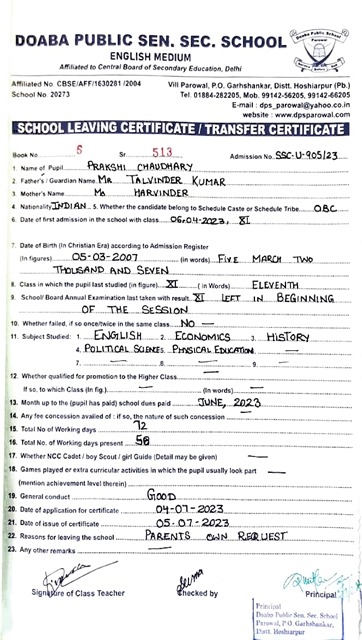 DOABA PUBLIC SEN. SEC. SCHOOL
ENGLISH MEDIUM
Affiliated to Central Board of Secondary Education, Delhi
Affiliated No. CBSE/AFF/1630281 /2004
School No. 20273
Vill Parowal, P.O. Garhshankar, Distt. Hoshiarpur (Pb.)
Tel. 01884-282205, Mob. 99142-56205, 99142-66205
E-mail : dps_parowal@yahoo.co.in
website : www.dpsparowal.com
SCHOOL LEAVING CERTIFICATE / TRANSFER CERTIFICATE
Book No 6 Sr. 513 Admission No. SSC-U-905/23
1 Name of Pupil PRAKSHI CHAUDHARY
2 Father's / Guardian Name MR TALVINDER KUMAR
3 Mother's Name HARVINDER
4 Nationality INDIAN 5. Whether the candidate belong to Schedule Caste or Schedule Tribe OBC
6 Date of first admission in the school with class 06.04-2023, XI
7 Date of Birth (In Christian Era) according to Admission Register
(In figures) 05-03-2007 (in words) FIVE MARCH TWO
THOUSAND AND SEVEN
8 Class in which the pupil last studied (in figure) XI ( in Words) ELEVENTH
9 School/ Board Annual Examination last taken with result XI LEFT IN BEGINNING
OF THE SESSION
10 Whether failed, if so once/twice in the same class NO
11 Subject Studied : 1. ENGLISH 2. ECONOMICS 3. HISTORY
4. POLITICAL SCIENCE 5. PHYSICAL EDUCATION 6.
7. 8. 9.
12 Whether qualified for promotion to the Higher Class
If so, to which Class (In fig.) (In words)
13 Month up to the (pupil has paid) school dues paid JUNE, 2023
14 Any fee concession availed of : if so, the nature of such concession
15 Total No of Working days 72
16 Total No. of Working days present 58
17 Whether NCC Cadet / boy Scout / girl Guide (Detail may be given)
18 Games played or extra curricular activities in which the pupil usually look part
(mention achievement level therein)
19 General conduct GOOD
20 Date of application for certificate 04-07-2023
21 Date of issue of certificate 05-07-2023
22 Reasons for leaving the school PARENTS OWN REQUEST
23 Any other remarks
Signature of Class Teacher Checked by Principal
Principal
Doaba Public Sen. Sec. School
Parowal, P.O. Garhshankar,
Distt. Hoshiarpur